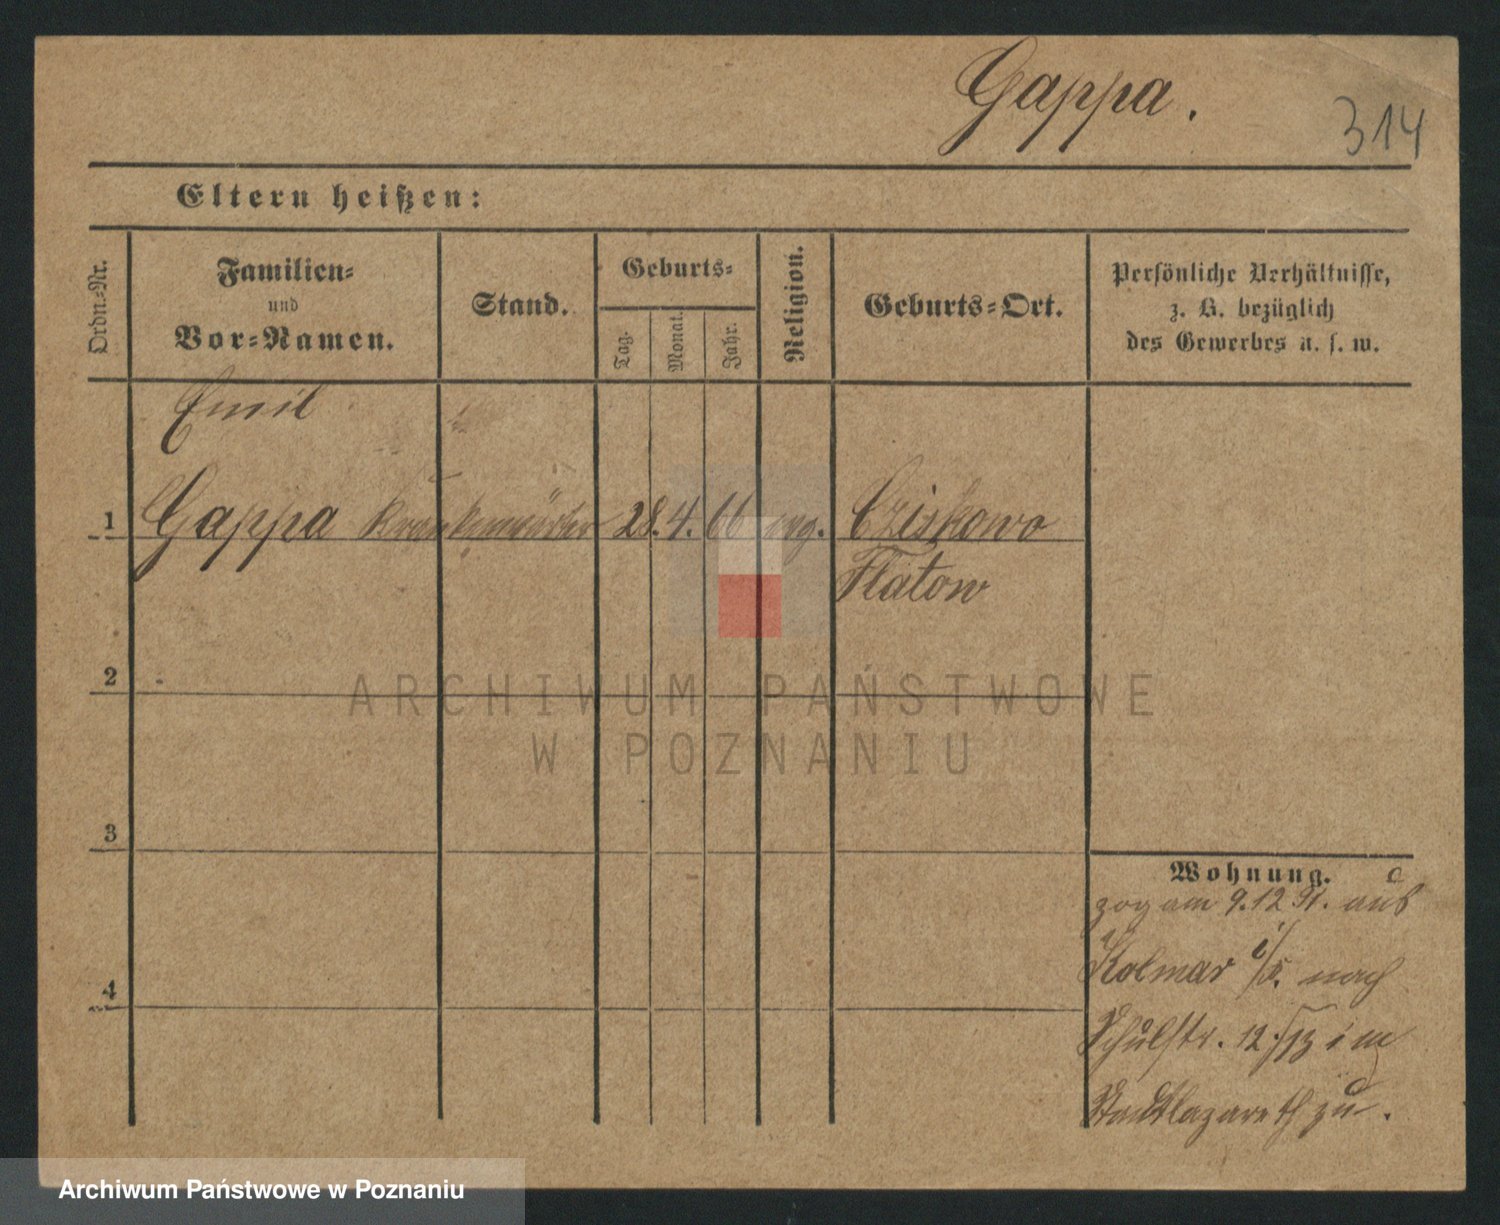 Gappa.
314
Eltern heißen:
Ordn.-Nr.
Familien-
und
Vor-Namen.
Stand.
Geburts-
Tag.
Monat.
Jahr.
Religion.
Geburts-Ort.
Persönliche Verhältnisse,
z. B. bezüglich
des Gewerbes u. s. w.
Emil
1 Gappa Krankenwärter 28. 4. 66 evg. Cziskowo
Flatow
2
3
4
Wohnung.
zog am 9.12.91. aus
Kolmar i/ nach
Schulstr. 12./13 im
Stadtlazareth zu.
ARCHIWUM PAŃSTWOWE
W POZNANIU
Archiwum Państwowe w Poznaniu